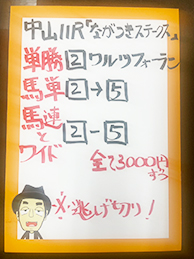 中山11R『ながつきステークス』
単勝 2 ワルツフォーラン
馬単 2→5
馬連とワイド 2-5
全て3000円ずつ
逃げ切り!